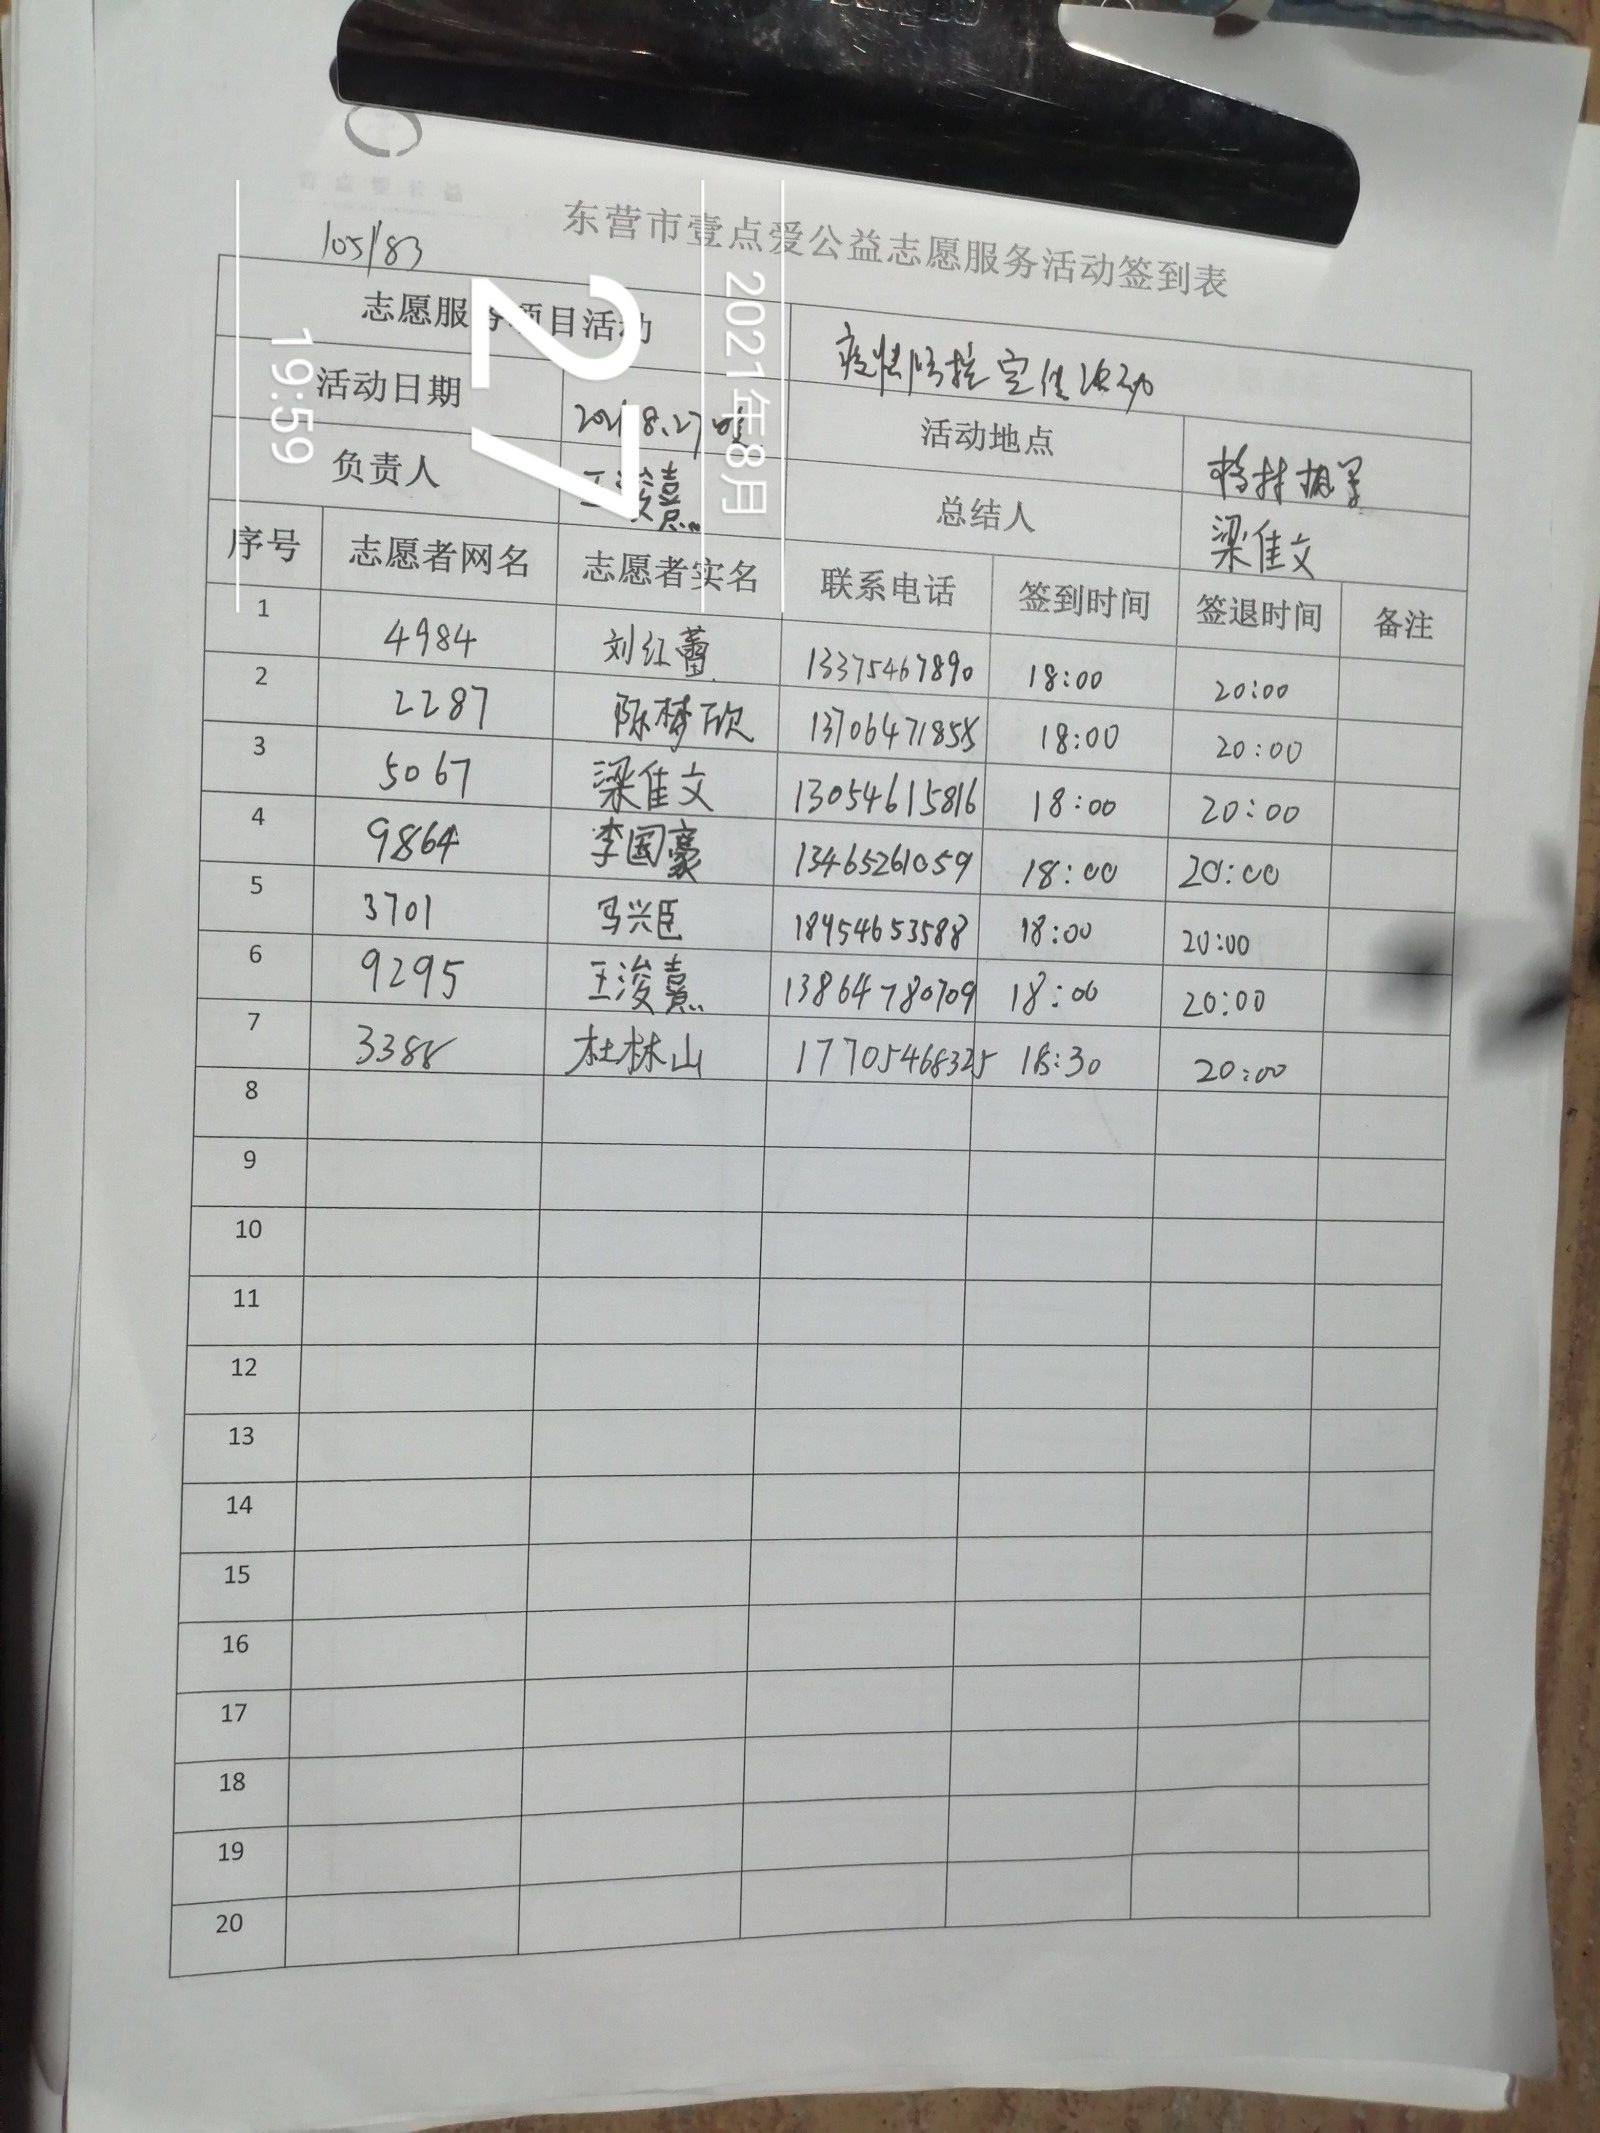 东营市壹点爱公益志愿服务活动签到表
105/83
志愿服务项目活动 疫情防控宣传活动
活动日期 2021.8.27晚 活动地点
负责人 王浚熹 总结人 梁佳文
序号 志愿者网名 志愿者实名 联系电话 签到时间 签退时间 备注
1 4984 刘红蕾 13375467890 18:00 20:00
2 2287 陈梦欣 13706471855 18:00 20:00
3 5067 梁佳文 13054615816 18:00 20:00
4 9864 李国豪 13465261059 18:00 20:00
5 3701 马兴臣 18954653588 18:00 20:00
6 9295 王浚熹 13864780709 18:00 20:00
7 3388 杜林山 17705468325 18:30 20:00
8
9
10
11
12
13
14
15
16
17
18
19
20
2021年8月
27
19:59